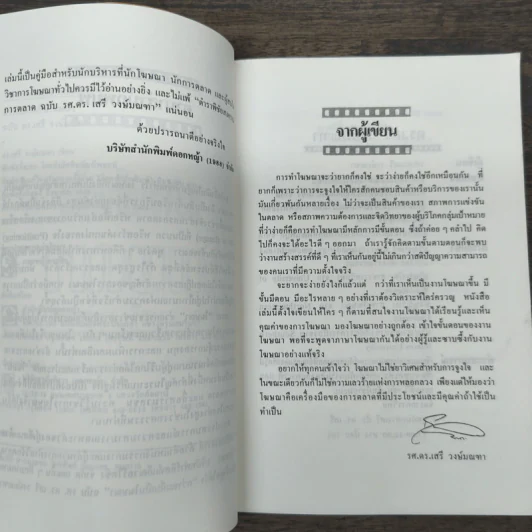 เล่มนี้เป็นคู่มือสำหรับนักบริหารที่นักโฆษณา นักการตลาด
วิชาการโฆษณาทั่วไปควรมีไว้อ่านอย่างยิ่ง และไม่แพ้
การตลาด ฉบับ รศ.ดร. เสรี วงษ์มณฑา" แน่นอน
ด้วยปรารถนาดีอย่างจริงใจ
บริษัทสำนักพิมพ์ดอกหญ้า
จากผู้เขียน
การทำโฆษณาจะว่ายากก็คงใช่ จะว่าง่ายก็คงใช่อีกเหมือนกัน ที่
ยากก็เพราะว่าการจะจูงใจให้ใครสักคนชอบสินค้าหรือบริการของเรานั้น
มันเกี่ยวพันกันหลายเรื่อง ไม่ว่าจะเป็นสินค้าของเรา สภาพการแข่งขัน
ในตลาด หรือสภาพความต้องการและจิตวิทยาของผู้บริโภคกลุ่มเป้าหมาย
ที่ว่าง่ายก็คือการทำโฆษณามีหลักการมีขั้นตอน ซึ่งถ้าค่อย ๆ คลำไป คิด
ไปก็คงจะได้อะไรดี ๆ ออกมา ถ้าเรารู้จักคิดตามขั้นตามตอนก็จะพบ
ว่างานสร้างสรรค์ที่ดี ๆ ที่เราเห็นกันอยู่นี้ไม่เกินกว่าสติปัญญาความสามารถ
ของคนเราที่มีความตั้งใจจริง
จะยากจะง่ายยังไงก็แล้วแต่ กว่าที่เราเห็นเป็นงานโฆษณาขึ้น มี
ขั้นมีตอน มีอะไรหลาย ๆ อย่างที่เราต้องวิเคราะห์ใคร่ครวญ หนังสือ
เล่มนี้ตั้งใจเขียนให้ใคร ๆ ก็ตามที่สนใจงานโฆษณาได้เรียนรู้และเห็น
คุณค่าของการโฆษณา มองโฆษณาอย่างถูกต้อง เข้าใจขั้นตอนของงาน
โฆษณา พอที่จะพูดจาภาษาโฆษณากันได้อย่างผู้รู้และซาบซึ้งกับงาน
โฆษณาอย่างแท้จริง
อยากให้ทุกคนเข้าใจว่า โฆษณาไม่ใช่ยาวิเศษสำหรับการจูงใจ และ
ในขณะเดียวกันก็ไม่ใช่ความเลวร้ายแห่งการหลอกลวง เพียงแต่ให้มองว่า
โฆษณาคือเครื่องมือของการตลาดที่มีประโยชน์และมีคุณค่าถ้าใช้เป็น
ทำเป็น
รศ.ดร.เสรี วงษ์มณฑา